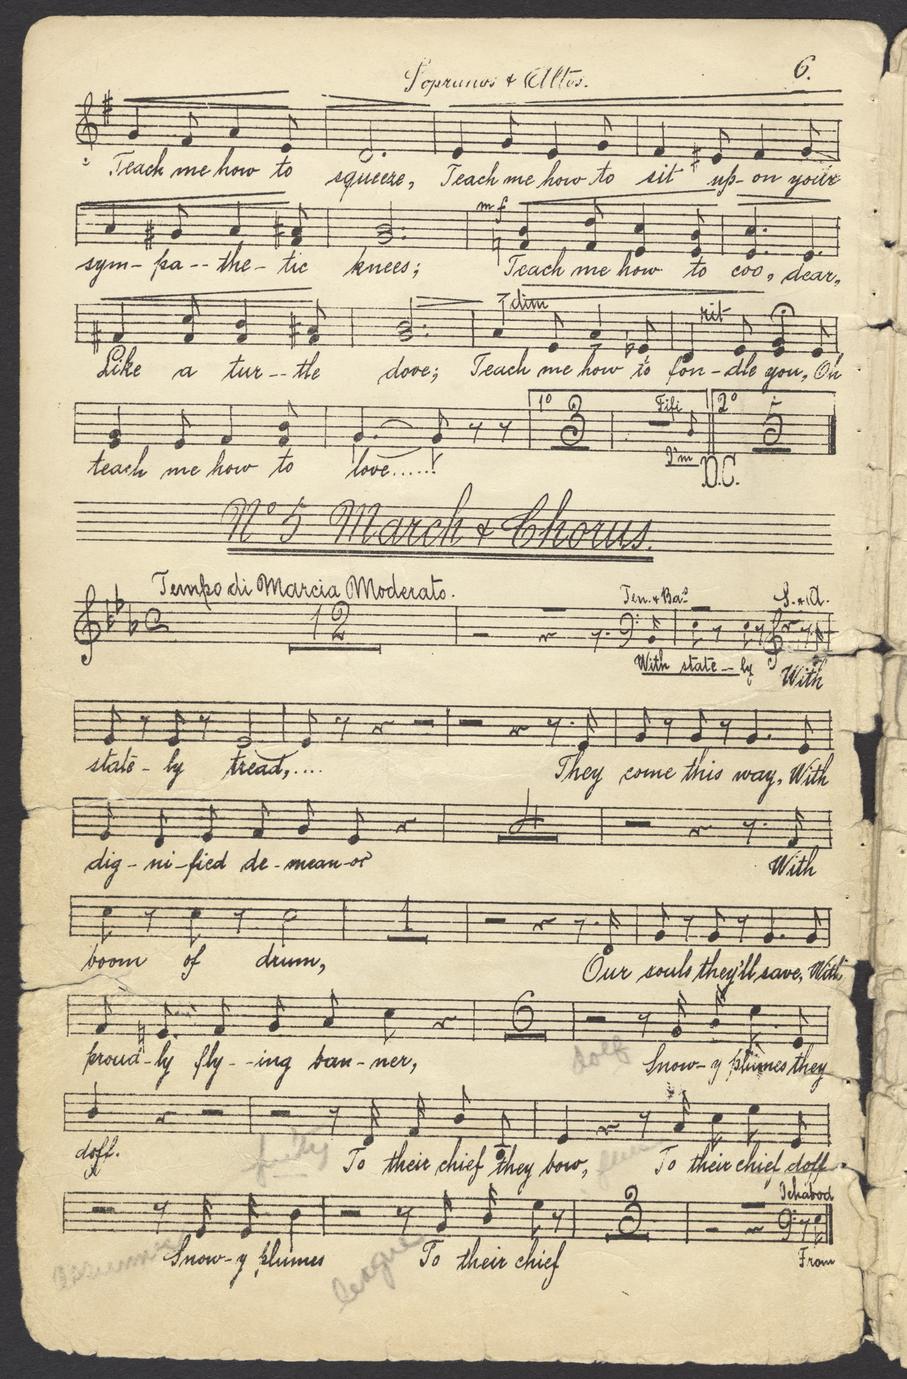 Sopranos & Altos.
6.
Teach me how to squeeze, Teach me how to sit up-on your
mf
sym-pa--the-tic knees; Teach me how to coo, dear,
dim rit
Like a tur--the dove; Teach me how to fon-dle you, Oh
1º 3 Fifi 2º 5
teach me how to love.....! I'm D.C.
Nº 5 March & Chorus.
Tempo di Marcia Moderato.
12 Ten. & Bas. S. & A.
With state--ly With
state-ly tread,.... They come this way, With
4
dig-ni-fied de-mean-or With
1
boom of drum, Our souls they'll save, With
6
proud-ly fly--ing ban-ner, doff Snow-y plumes they
doff. To their chief they bow, To their chief doff
3 Ichabod
Snow-y plumes To their chief From
league